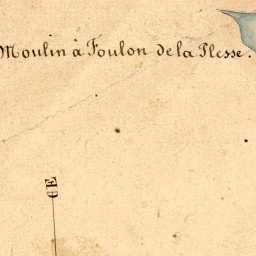 Moulin à Foulon de la Plesse.
CE